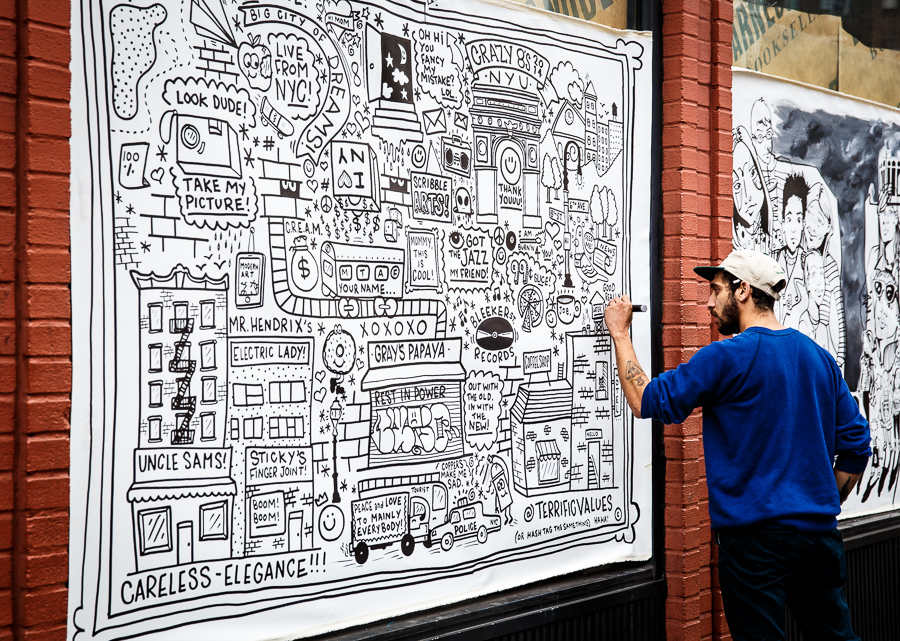 BIG CITY
OF
DREAMS!
HI MOM!
LIVE
FROM
NYC!
OH HI!
YOU
FANCY
MY
MISTAKE?
LOL
CRAZY 8'S
N.Y.U.
LOOK DUDE!
TAKE MY
PICTURE!
100
%
I
NY
SCRIBBLE
ARTS!
THANK
YOUU!
5TH AVE
C.R.E.A.M.
$
MTA
YOUR NAME...
MOMMY,
THIS
IS
COOL!
GOT
THE JAZZ
MY FRIEND!
I AM
BURNIN'
SLICE
MODERN
ART
MR. HENDRIX'S
ELECTRIC LADY!
XOXOXO
GRAY'S PAPAYA
REST IN POWER
BLEEKER ST
RECORDS
GOOD
JOB
COFFEE SHOP
OUT WITH
THE OLD.
IN WITH
THE
NEW!
HELLO
UNCLE SAMS!
STICKY'S
FINGER JOINT!
BOOM!
BOOM!
COPPERS
MAKE ME
SAD.
TOURIST
PEACE and LOVE
TO MAINLY
EVERYBODY!
POLICE
NYC
@TERRIFICVALUES
(OR HASH TAG THE SAME THING) HAHA!
CARELESS-ELEGANCE!!!